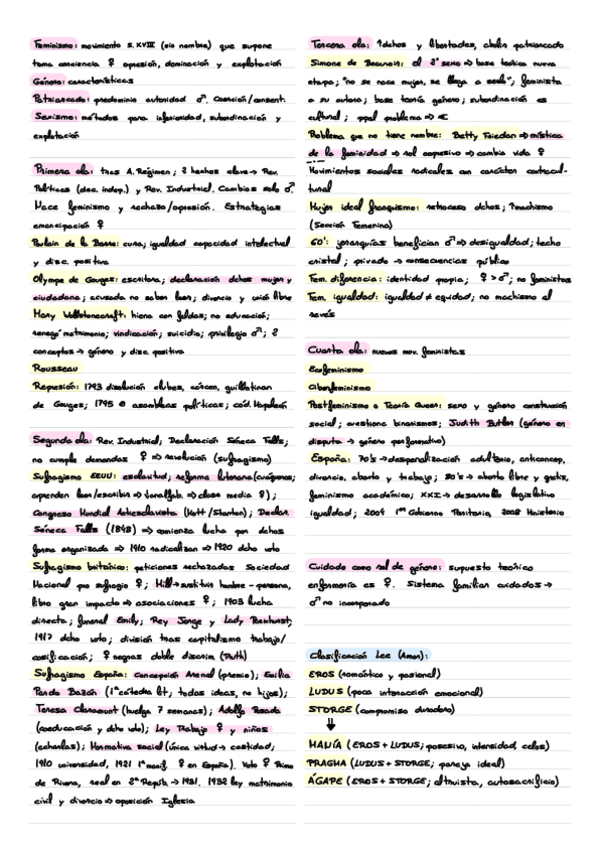 Feminismo: movimiento s.XVIII (sin nombre) que supone
toma conciencia ♀ opresión, dominación y explotación
Género: características
Patriarcado: predominio autoridad ♂. Coerción/consent.
Sexismo: métodos para inferioridad, subordinación y
explotación
Primera ola: tras A. Régimen; 2 hechos clave → Rev.
Políticas (dec. indep.) y Rev. Industrial. Cambios solo ♂
Nace feminismo y rechazo/opresión. Estrategias
emancipación ♀
Poulain de la Barre: cura; igualdad capacidad intelectual
y disc. positiva
Olympe de Gouges: escritora; declaración dchos mujer y
ciudadana; acusada no saber leer; divorcio y unión libre
Mary Wollstonecraft: hiena con faldas; no educación;
renegó matrimonio; vindicación; suicidio; privilegio ♂; 2
conceptos → género y disc. positiva
Rousseau
Represión: 1793 disolución clubes, cárcen, guillotinan
de Gouges; 1795 asambleas políticas; cód. Napoleón
Segunda ola: Rev. Industrial; Declaración Séneca Falls;
no cumple demandas ♀ ⇒ revolución (sufragismo)
Sufragismo EEUU: esclavitud; reforma luterana (cuáqueros;
aprenden leer/escribir ⇒ clase media ♀);
Congreso Mundial Antiesclavista (Mott / Stanton); Declar.
Séneca Falls (1848) ⇒ comienza lucha por dchos
forma organizada ⇒ 1910 radicalizan ⇒ 1920 dcho voto
Sufragismo británico: peticiones rechazadas Sociedad
Nacional pro sufragio ♀; Mill → sustituir hombre - persona,
libro gran impacto ⇒ asociaciones ♀; 1903 lucha
directa; funeral Emily; Rey Jorge y Lady Pankhurst;
1917 dcho voto; división tras capitalismo trabajo/
cosificación; ♀ negras doble discrim (Truth)
Sufragismo España: Concepción Arenal (premio); Emilia
Pardo Bazán (1ª cátedra lit; todas ideas, no hijos);
Teresa Claramunt (huelga 7 semanas); Adolfo Posada
(coeducación y dcho voto); Ley Trabajo ♀ y niños
(echarlas); Normativa social (única virtud → castidad;
1910 universidad, 1921 1ª manif. ♀ en España). Voto ♀ Primo
de Rivera, real en 2ª Repúb. → 1931. 1932 ley matrimonio
civil y divorcio ⇒ oposición Iglesia
Tercera ola: ↑dchos y libertades, abolir patriarcado
Simone de Beauvoir: el 2º sexo ⇒ base teórica nueva
etapa; "no se nace mujer, se llega a serlo"; feminista
a su autora; base teoría género; subordinación es
cultural; ppal problema ⇒
Problema que no tiene nombre: Betty Friedan ⇒ mística
de la feminidad ⇒ rol opresivo ⇒ cambia vida ♀
Movimientos sociales radicales con carácter contracul-
tural
Mujer ideal franquismo: retroceso dchos; ↑machismo
(Sección Femenina)
60': jerarquías benefician ♂ ⇒ desigualdad; techo
cristal; privado → consecuencias público
Fem. diferencia: identidad propia; ♀ > ♂; no feministas
Fem. igualdad: igualdad ≠ equidad; no machismo al
revés
Cuarta ola: nuevos mov. feministas
Ecofeminismo
Ciberfeminismo
Postfeminismo o Teoría Queer: sexo y género construcción
social; cuestiona binarismos; Judith Butler (género en
disputa → género performativo)
España: 70's → despenalización adulterio, anticoncep,
divorcio, aborto y trabajo; 80's → aborto libre y gratis,
feminismo académico; XXI → desarrollo legislativo
igualdad; 2004 1er Gobierno Paritario, 2008 Ministerio
Cuidado como rol de género: supuesto teórico
enfermería es ♀. Sistema familiar cuidados →
♂ no incorporado
Clasificación Lee (Amor):
EROS (romántico y pasional)
LUDUS (poca interacción emocional)
STORGE (compromiso duradero)
↓
MANÍA (EROS + LUDUS; posesivo, intensidad, celos)
PRAGMA (LUDUS + STORGE; pareja ideal)
ÁGAPE (EROS + STORGE; altruista, autosacrificio)